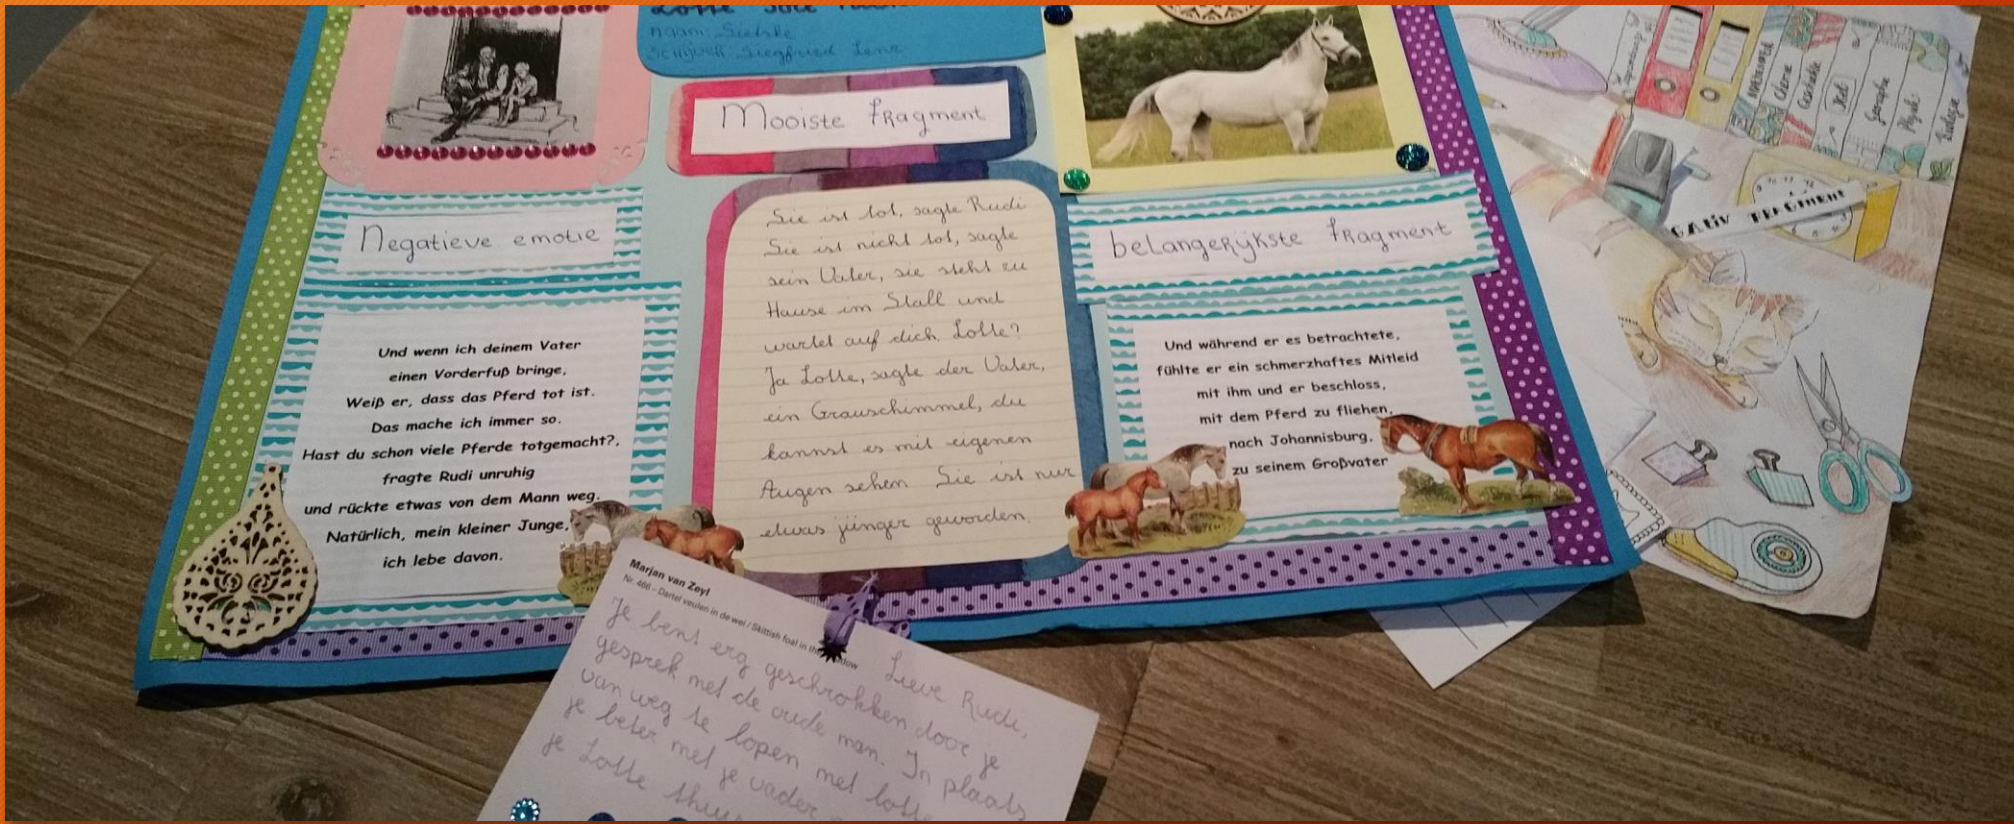 naam: Sietske
Schrijver: Siegfried Lenz
Mooiste fragment
Negatieve emotie
Und wenn ich deinem Vater
einen Vorderfuß bringe,
Weiß er, dass das Pferd tot ist.
Das mache ich immer so.
Hast du schon viele Pferde totgemacht?,
fragte Rudi unruhig
und rückte etwas von dem Mann weg.
Natürlich, mein kleiner Junge,
ich lebe davon.
Sie ist tot, sagte Rudi
Sie ist nicht tot, sagte
sein Vater, sie steht zu
Hause im Stall und
wartet auf dich. Lotte?
Ja Lotte, sagte der Vater,
ein Grauschimmel, du
kannst es mit eigenen
Augen sehen. Sie ist nur
etwas jünger geworden.
belangerijkste fragment
Und während er es betrachtete,
fühlte er ein schmerzhaftes Mitleid
mit ihm und er beschloss,
mit dem Pferd zu fliehen,
nach Johannisburg,
zu seinem Großvater
Marjan van Zeyl
Nr. 466 - Dartel veulen in de wei / Skittish foal in the
Lieve Rudi,
Je bent erg geschrokken door je
gesprek met de oude man. In plaats
van weg te lopen met lotte
je beter met je vader
je Lotte
Chemie
Geschichte
Biologie